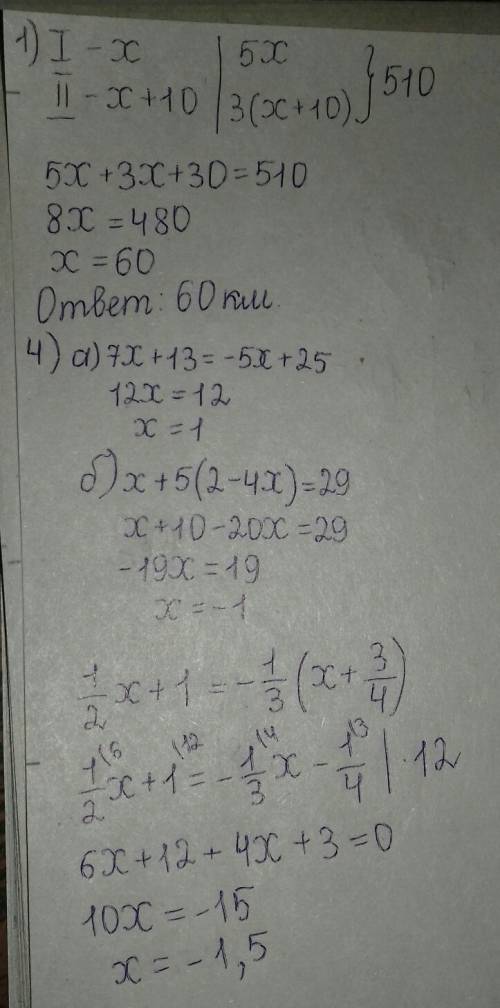 1) I - x | 5x } 510
II - x+10 | 3(x+10)
5x+3x+30=510
8x=480
x=60
Ответ: 60 км.
4) а) 7x+13=-5x+25
12x=12
x=1
б) x+5(2-4x)=29
x+10-20x=29
-19x=19
x=-1
1/2 x+1=-1/3(x+3/4)
1\6/2 x+1\12=-1\4/3 x-1\3/4 |·12
6x+12+4x+3=0
10x=-15
x=-1,5